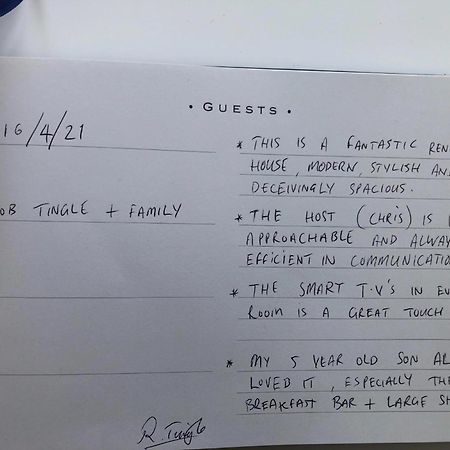 • GUESTS •
16/4/21
OB TINGLE + FAMILY
R. Tingle
* THIS IS A FANTASTIC REN
HOUSE, MODERN, STYLISH AN
DECEIVINGLY SPACIOUS.
* THE HOST (CHRIS) IS
APPROACHABLE AND ALWAY
EFFICIENT IN COMMUNICATIO
* THE SMART T.V'S IN EV
ROOM IS A GREAT TOUCH
* MY 5 YEAR OLD SON AL
LOVED IT, ESPECIALLY THE
BREAKFAST BAR + LARGE SH